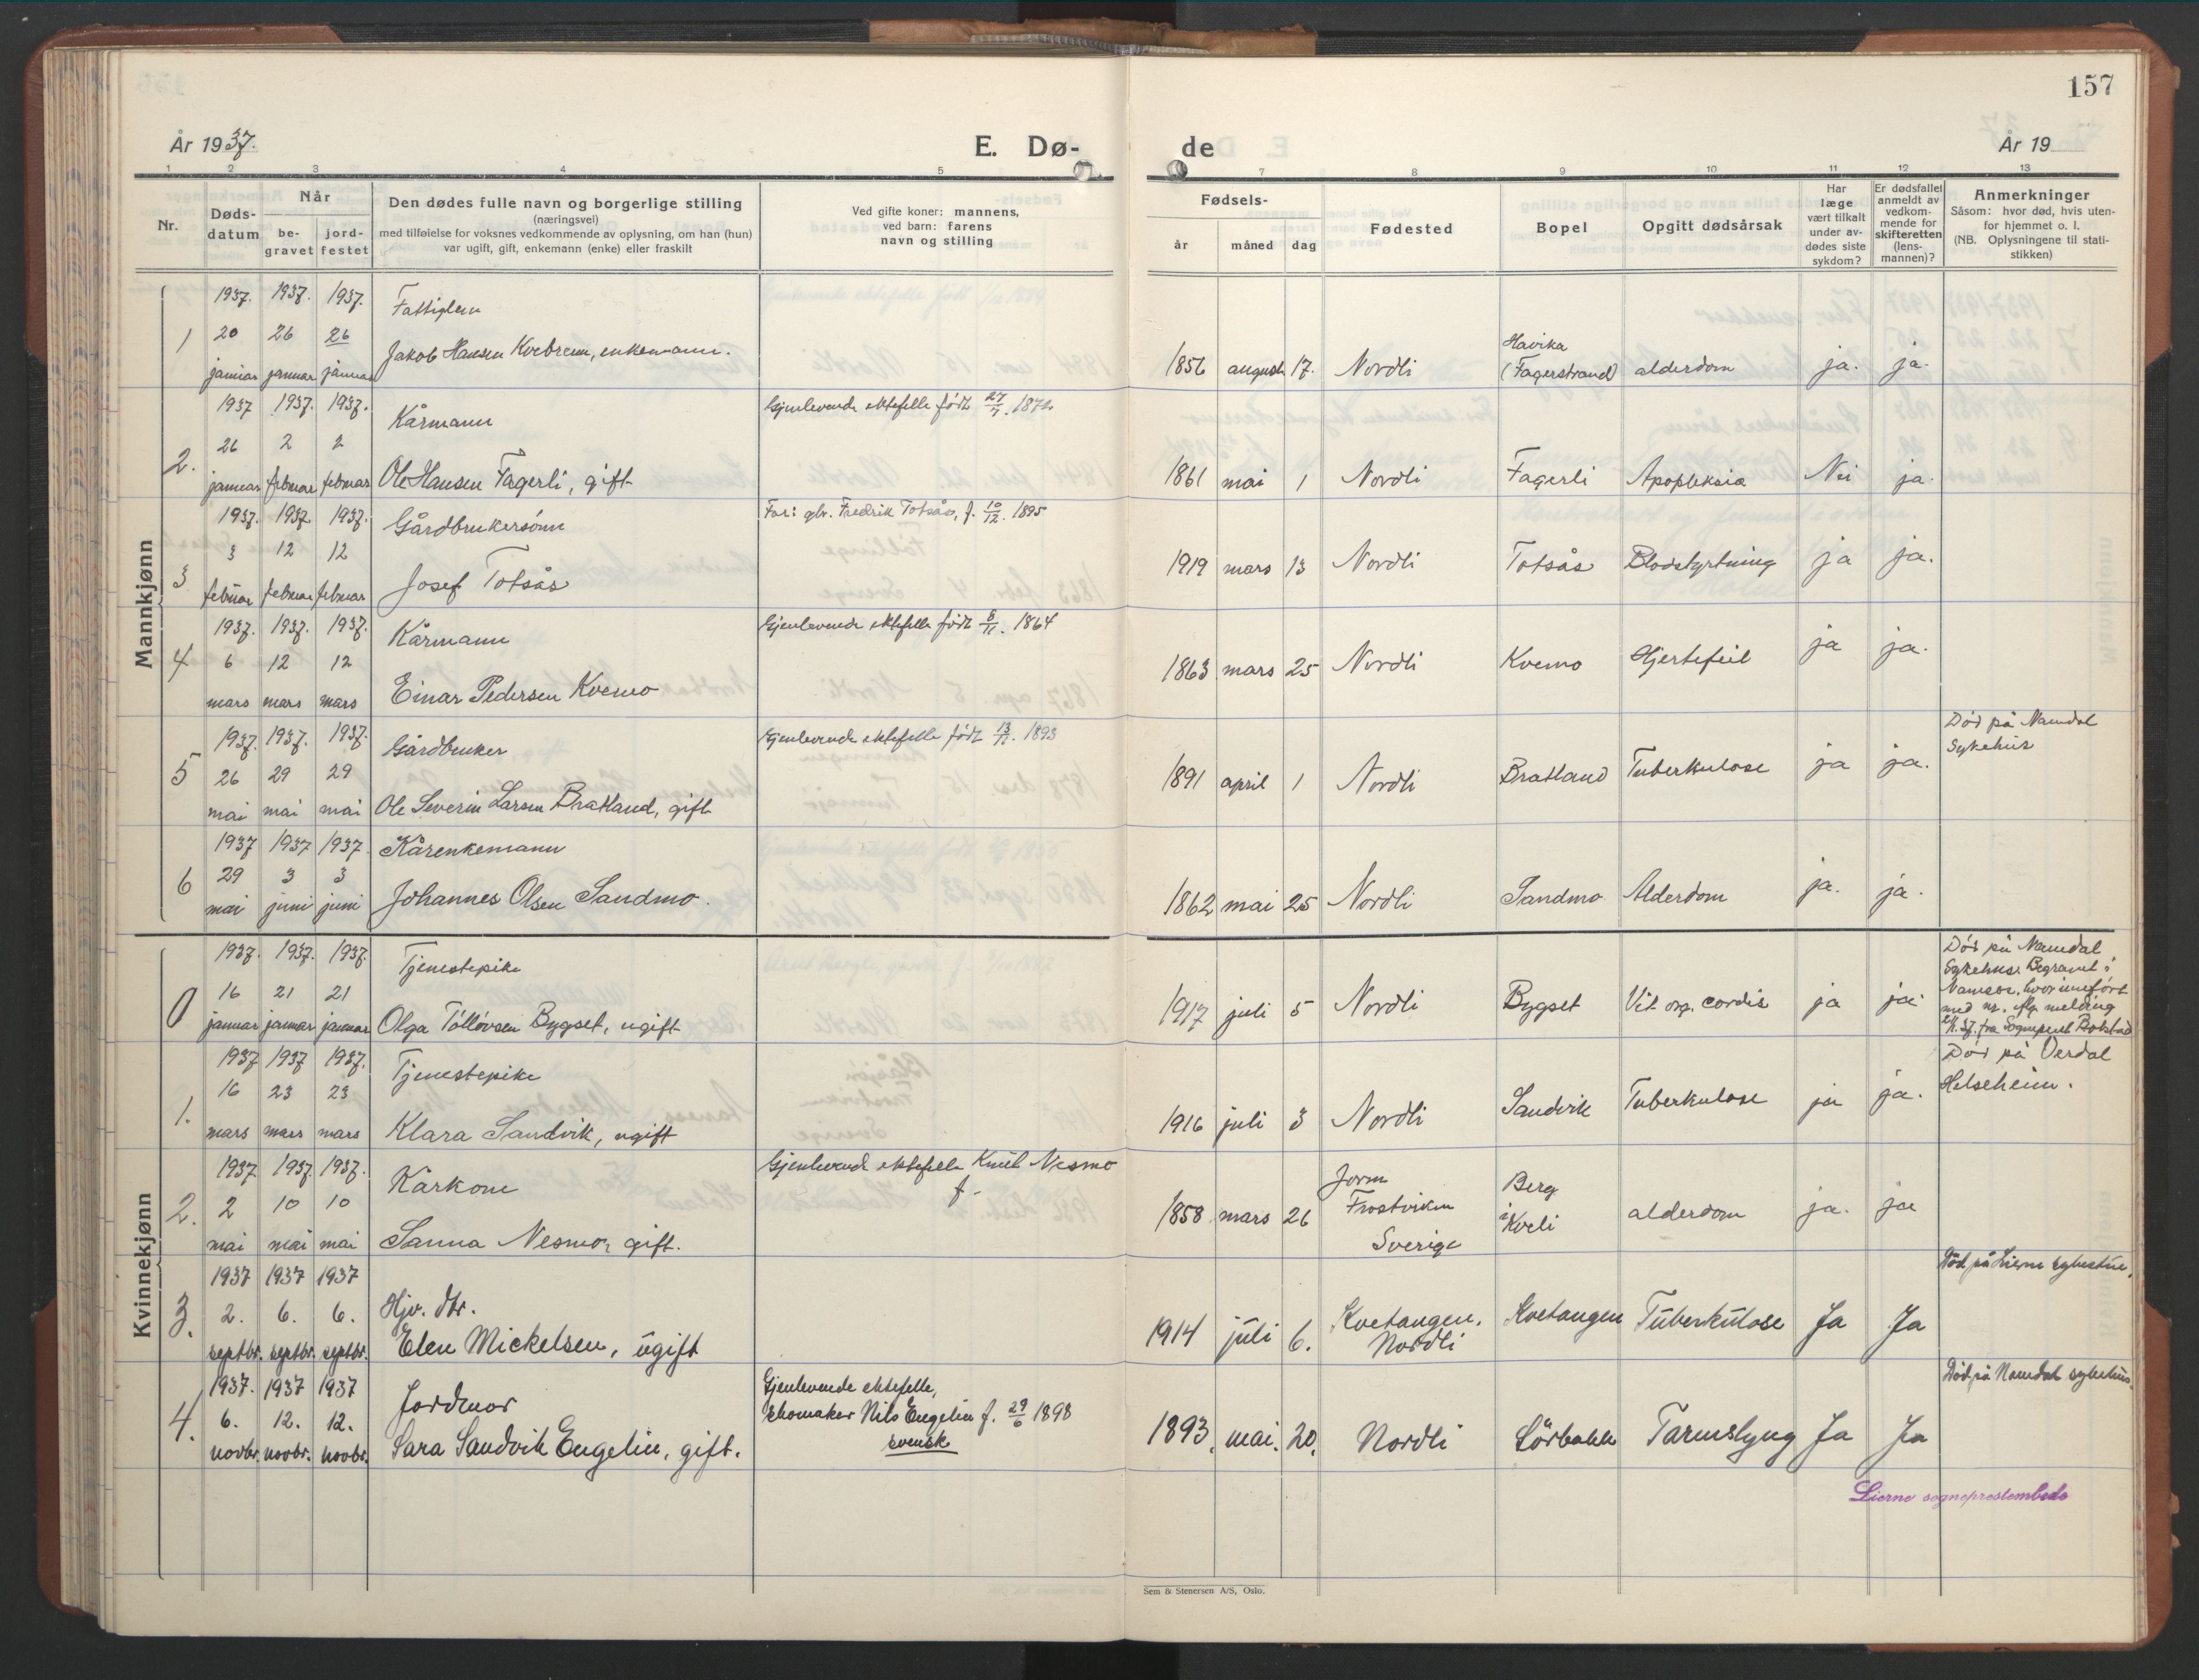 157
År 1937.
E. Dø-
de
År 19
1 2 3 4 5 7 8 9 10 11 12 13
Nr.
Døds-
datum
Når
be-
gravet
jord-
festet
Den dødes fulle navn og borgerlige stilling
(næringsvei)
med tilføielse for voksnes vedkommende av oplysning, om han (hun)
var ugift, gift, enkemann (enke) eller fraskilt
Ved gifte koner: mannens,
ved barn: farens
navn og stilling
Fødsels-
år
måned
dag
Fødested
Bopel
Opgitt dødsårsak
Har
læge
vært tilkalt
under av-
dødes siste
sykdom?
Er dødsfallet
anmeldt av
vedkom-
mende for
skifteretten
(lens-
mannen)?
Anmerkninger
Såsom: hvor død, hvis uten-
for hjemmet o. l.
(NB. Oplysningene til stati-
stikken)
Mannkjønn
1937. 1937. 1937. Fattiglem
1 20 26 26 Havika
januar januar januar Jakob Hansen Kvebrem, enkemann. 1856 august 17. Nordli (Fagerstrand) alderdom ja. ja.
1937 1937. 1937. Kårmann Gjenlevende ektefelle født 27/7. 1872
2. 26 2 2
januar februar februar Ole Hansen Fagerli, gift 1861 mai 1 Nordli Fagerli Apopleksia Nei ja.
1937. 1937. 1937. Gårdbrukersønn Far: gbr. Fredrik Totsås, f. 10/12. 1895
3 3 12 12
februar februar februar Josef Totsås 1919 mars 13 Nordli Totsås Blodstyrtning ja ja.
1937. 1937. 1937. Kårmann Gjenlevende ektefelle født 8/11. 1864
4 6 12 12
mars mars mars Einar Pedersen Kvemo 1863 mars 25 Nordli Kvemo Hjertefeil ja ja.
1937. 1937. 1937. Gårdbruker Gjenlevende ektefelle født 13/11. 1893 Død på Namdal
Sykehus
5 26 29 29
mai mai mai Ole Severin Larsen Bratland, gift 1891 april 1 Nordli Bratland Tuberkulose ja ja.
1937 1937 1937. Kårenkemann
6 29 3 3
mai juni juni Johannes Olsen Sandmo. 1862 mai 25 Nordli Sandmo Alderdom ja. ja.
Kvinnekjønn
1937. 1937. 1937. Tjenestepike Død på Namdal
Sykehus. Begravet i
Namsos, hvor innført
med nr. iflg. melding
fra Sogneprest
0 16 21 21
januar januar januar Olga Tølløvsen Bygset, ugift 1917 juli 5 Nordli Bygset Vit. org. cordis ja ja.
1937 1937 1937. Tjenestepike Død på Verdal
Helseheim.
1. 16 23 23
mars mars mars Klara Sandvik, ugift 1916 juli 3 Nordli Sandvik Tuberkulose ja ja.
1937. 1937. 1937. Kårkone Gjenlevende ektefelle Knut Nesmo
f. -
2. 2 10 10
mai mai mai Sanna Nesmo, gift. 1858 mars 26 Jorm
Frostviken
Sverige
Berg
i Kveli alderdom ja. ja
1937 1937 1937 Død på Lierne sykestue.
3. 2. 6. 6. Hjv. dtr.
septbr. septbr. septbr. Elen Mickelsen, ugift 1914 juli 6. Kvetangen,
Nordli
Kvetangen Tuberkulose Ja Ja
1937. 1937 1937 Jordmor Gjenlevende ektefelle, Død på Namdal sykehus.
4. 6. 12. 12. skomaker Nils Engelin f. 29/6 1898
svensk
novbr. novbr. novbr. Sara Sandvik Engelin, gift. 1893. mai. 20. Nordli Sörbakk Tarmslyng Ja Ja
Lierne sogneprestembede
Sem & Stenersen A/S, Oslo.